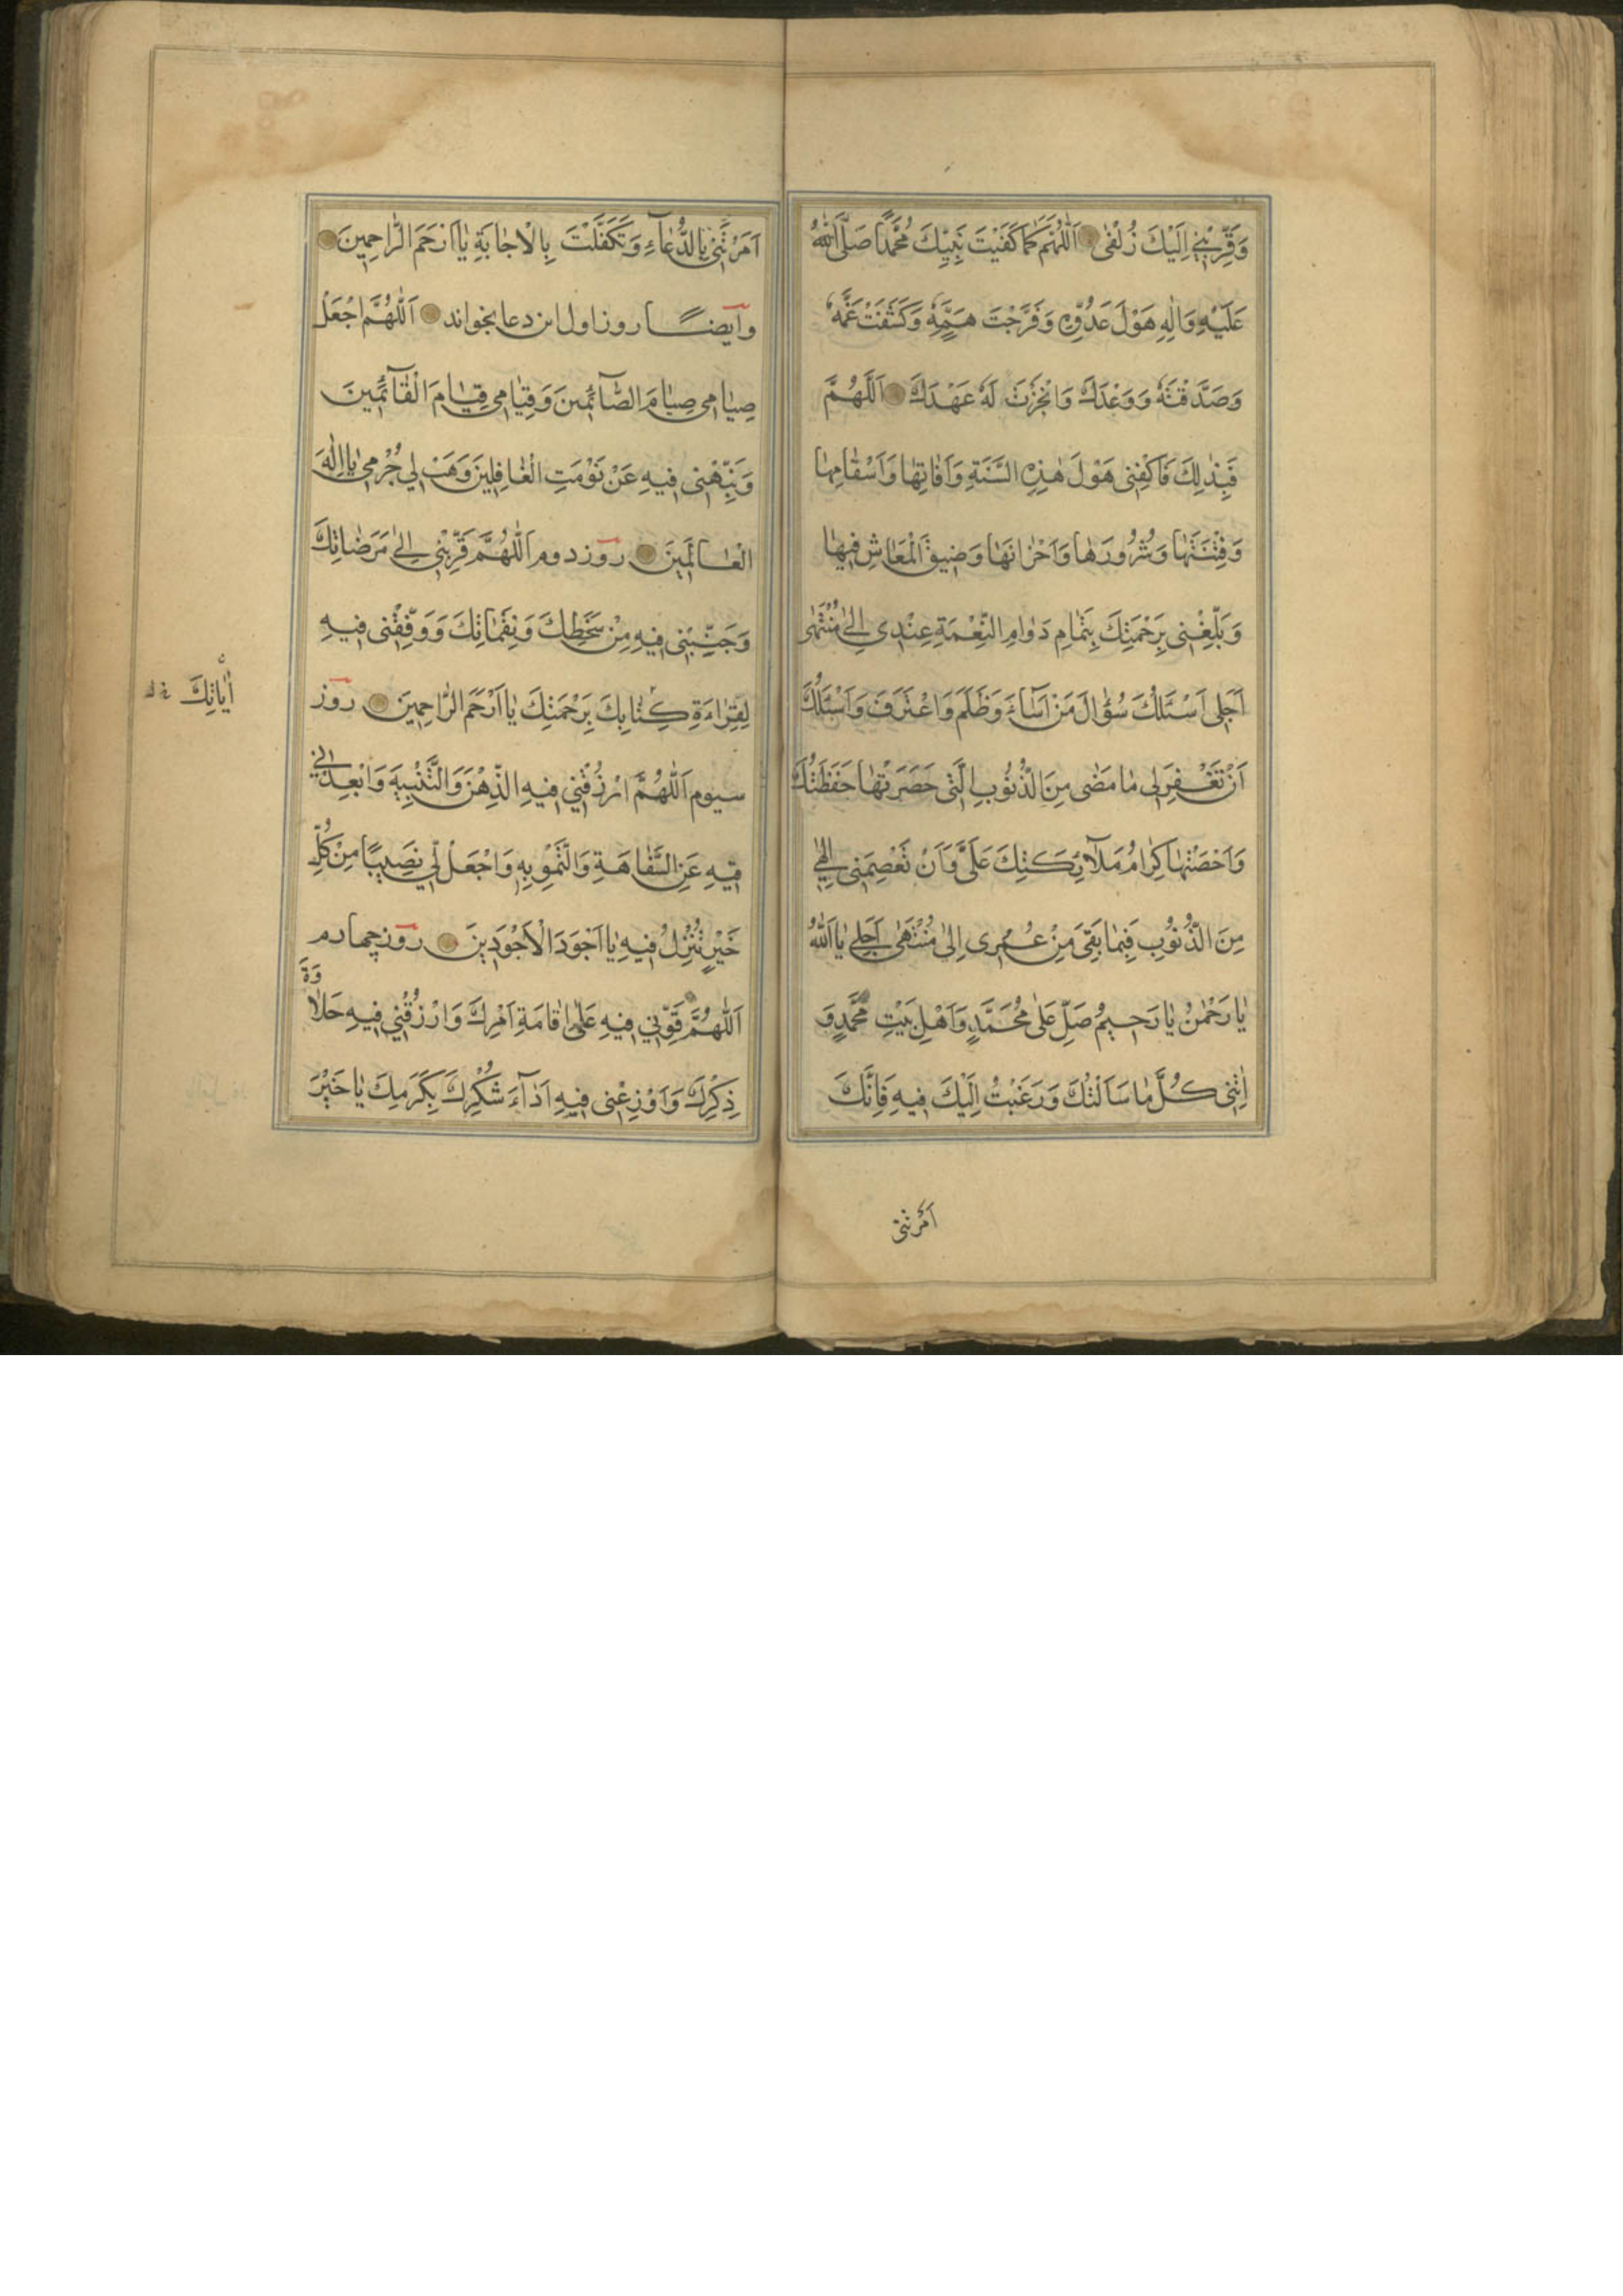 وَقَرِّبْنِي اِلَيْكَ زُلْفٰى اَللّٰهُمَّ كَمَا كَفَيْتَ نَبِيَّكَ مُحَمَّدًا صَلَّى اللّٰهُ
عَلَيْهِ وَاٰلِهِ هَوْلَ عَدُوِّهِ وَفَرَّجْتَ هَمَّهُ وَكَشَفْتَ غَمَّهُ
وَصَدَّقْتَهُ وَوَعْدَكَ وَاَنْجَزْتَ لَهُ عَهْدَكَ اَللّٰهُمَّ
فَبِذٰلِكَ فَاكْفِنِى هَوْلَ هٰذِهِ السَّنَةِ وَاٰفَاتِهَا وَاَسْقَامِهَا
وَفِتْنَتَهَا وَشُرُورَهَا وَاَحْزَانَهَا وَضِيقَ الْمَعَاشِ فِيهَا
وَبَلِّغْنِى بِرَحْمَتِكَ بِتَمَامِ دَوَامِ النِّعْمَةِ عِنْدِى اِلٰى مُنْتَهٰى
اَجَلِى اَسْئَلُكَ سُؤٰالَ مَنْ اَسَاءَ وَظَلَمَ وَاعْتَرَفَ وَاَسْئَلُكَ
اَنْ تَغْفِرَ لِى مَا مَضٰى مِنَ الذُّنُوبِ الَّتِى حَصَرَتْهَا حَفَظَتُكَ
وَاَحْصَتْهَا كِرَامُ مَلَآئِكَتِكَ عَلَىَّ وَاَنْ تَعْصِمَنِى اِلٰهِي
مِنَ الذُّنُوبِ فِيمَا بَقِىَ مِنْ عُمْرِى اِلٰى مُنْتَهٰى اَجَلِي يَا اَللّٰهُ
يَا رَحْمٰنُ يَا رَحِيمُ صَلِّ عَلٰى مُحَمَّدٍ وَاَهْلِ بَيْتِ مُحَمَّدٍ وَ
اٰتِنِى كُلَّ مَا سَاَلْتُكَ وَرَغِبْتُ اِلَيْكَ فِيهِ فَاِنَّكَ
اَمَرْتَنِى
اَمَرْتَنِى بِالدُّعَآءِ وَتَكَفَّلْتَ بِالْاِجَابَةِ يَا اَرْحَمَ الرَّاحِمِينَ
وايضًا روز اول اىن دعا بخواند اَللّٰهُمَّ اجْعَلْ
صِيَامِى صِيَامَ الصَّآئِمِينَ وَقِيَامِى قِيَامَ الْقَآئِمِينَ
وَنَبِّهْنِى فِيهِ عَنْ نَوْمَتِ الْغَافِلِينَ وَهَبْ لِي جُرْمِى يَا اِلٰهَ
الْعَالَمِينَ روز دوم اَللّٰهُمَّ قَرِّبْنِي اِلٰى مَرَضَاتِكَ
وَجَنِّبْنِى فِيهِ مِنْ سَخَطِكَ وَنِقَمَاتِكَ وَوَفِّقْنِى فِيهِ
لِقِرَاءَةِ كِتَابِكَ بِرَحْمَتِكَ يَا اَرْحَمَ الرَّاحِمِينَ روز
اٰيَاتِكَ
سيوم اَللّٰهُمَّ ارْزُقْنِي فِيهِ الذِّهْنَ وَالتَّنْبِيهَ وَابْعِدْنِي
فِيهِ عَنِ السَّفَاهَةِ وَالتَّمْوِيهِ وَاجْعَلْ لِي نَصِيبًا مِنْ كُلِّ
خَيْرٍ تُنْزِلُ فِيهِ يَا اَجْوَدَ الْاَجْوَدِينَ روز چهارم
اَللّٰهُمَّ قَوِّنِي فِيهِ عَلٰى اِقَامَةِ اَمْرِكَ وَارْزُقْنِي فِيهِ حَلَاوَةَ
ذِكْرِكَ وَاَوْزِعْنِى فِيهِ اَدَآءَ شُكْرِكَ بِكَرَمِكَ يَا خَيْرَ